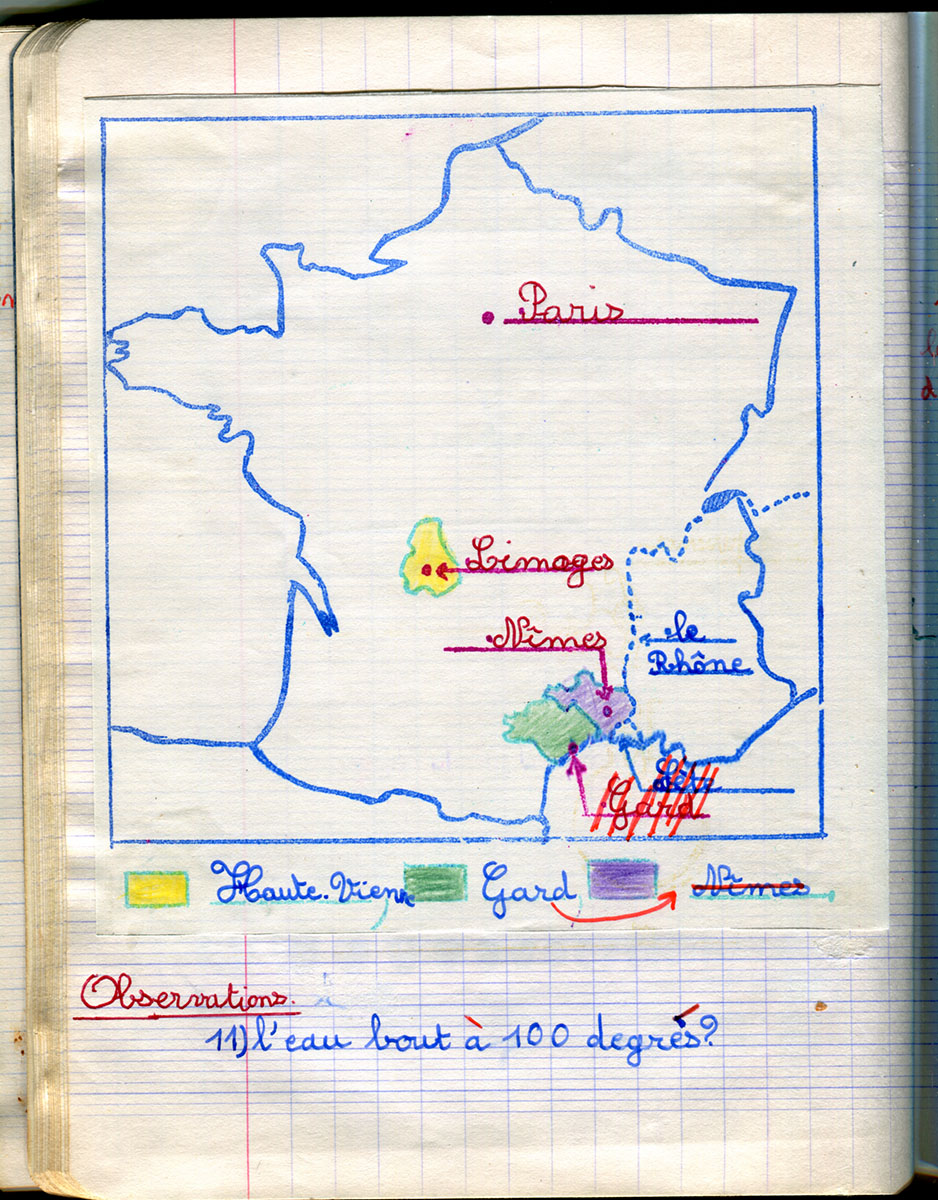 Paris
Limoges
Nîmes
le
Rhône
Gard
Haute-Vienne
Gard
Nîmes
Observations.
11) l'eau bout à 100 degrés?